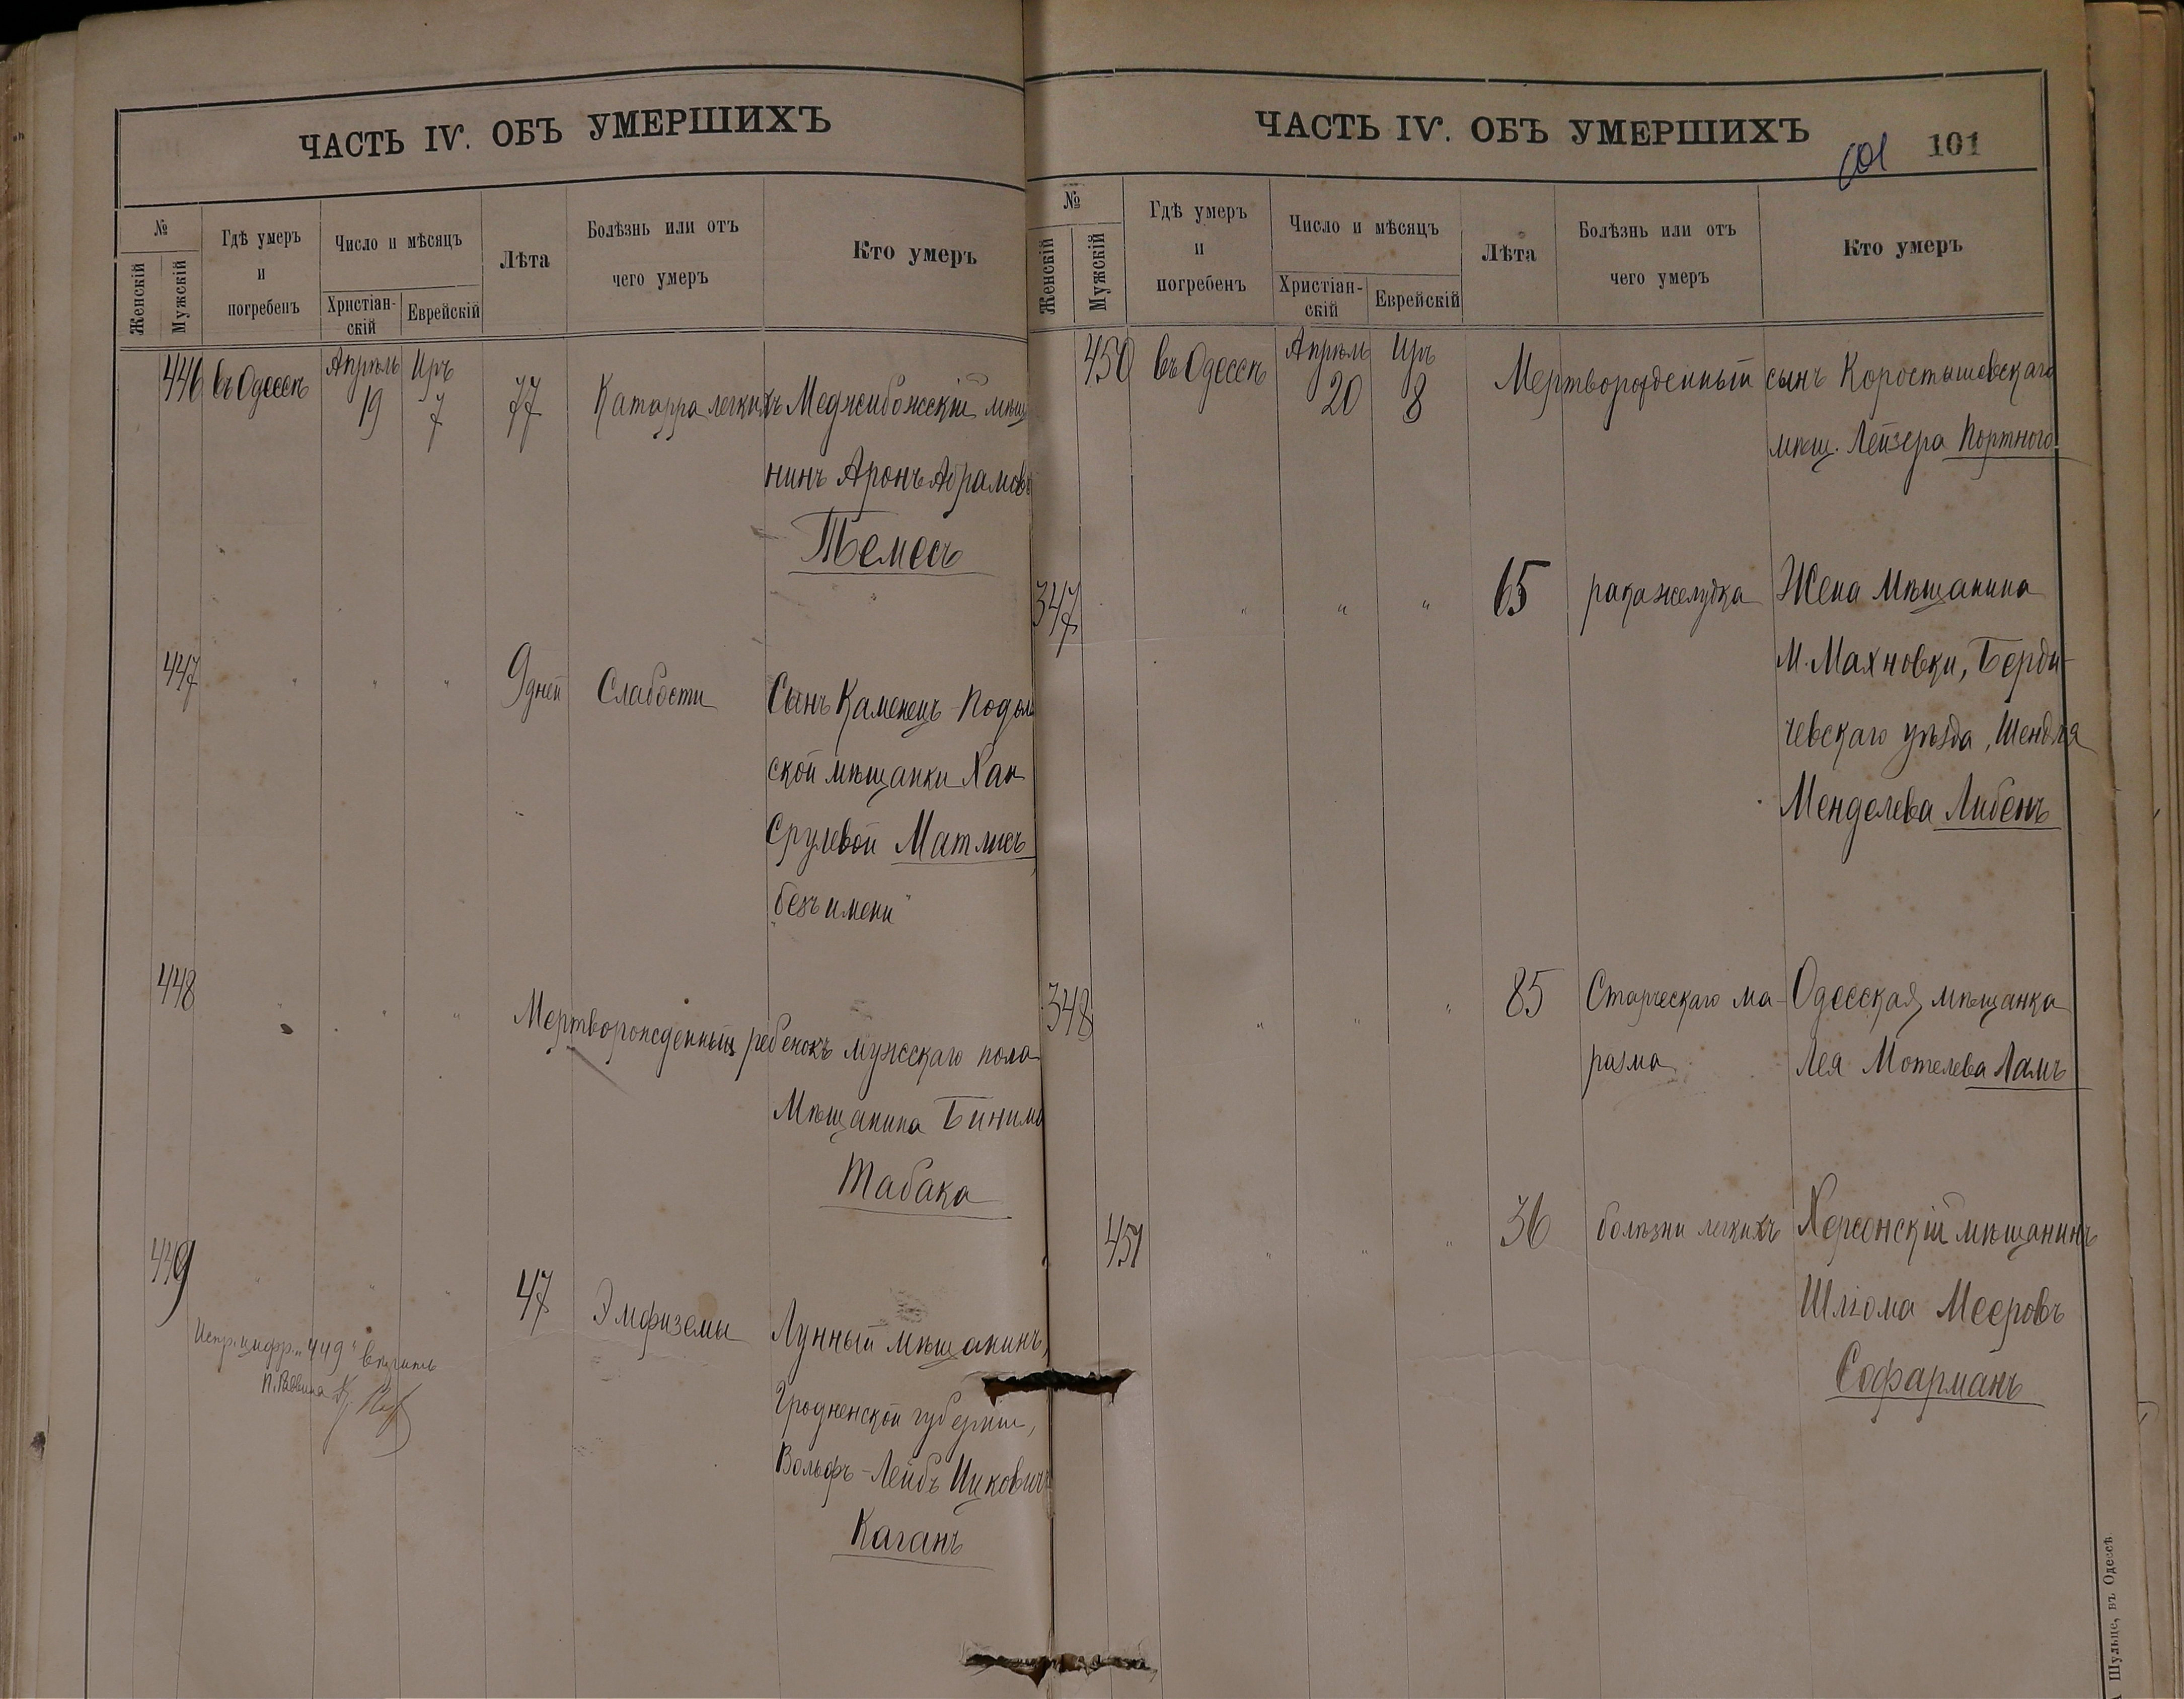 ЧАСТЬ IѴ. ОБЪ УМЕРШИХЪ
№
Женскій
Мужскій
Гдѣ умеръ
и
погребенъ
Число и мѣсяцъ
Христіан-
скій
Еврейскій
Лѣта
Болѣзнь или отъ
чего умеръ
Кто умеръ
446 въ Одессѣ Апрѣль 19 Иръ 7 77 Катарра легкихъ Меджибожскій мѣща
нинъ Аронъ Абрамовъ
Темесъ
447 " " " 9 дней Слабости Сынъ Каменецъ-Подоль
ской мѣщанки Хан
Срулевой Матлисъ
"безъ имени"
448 " " " Мертворожденный ребенокъ мужескаго пола
Мѣщанина Бинима
Табака
449 " " " 47 Эмфиземы Лунный мѣщанинъ,
Гродненской губерніи,
Вольфъ-Лейбъ Ицковичъ
Каганъ
Испр. цифр. "449"
П. Раввина
ЧАСТЬ IѴ. ОБЪ УМЕРШИХЪ
101 101
№
Женскій
Мужскій
Гдѣ умеръ
и
погребенъ
Число и мѣсяцъ
Христіан-
скій
Еврейскій
Лѣта
Болѣзнь или отъ
чего умеръ
Кто умеръ
450 въ Одессѣ Апрѣль 20 Иръ 8 Мертворожденный сынъ Коростышовскаго
мѣщ. Лейзера Портного
347 " " " 65 рака желудка Жена Мѣщанина
М. Махновки, Берди-
чевскаго уѣзда, Шендля
Менделева Либенъ
348 " " " 85 Старческаго ма- Одесская мѣщанка
разма Лея Мотелева Ламъ
451 " " " 36 болѣзни легкихъ Херсонскій мѣщанинъ
Шліома Мееровъ
Софарманъ
Шульце, въ Одессѣ